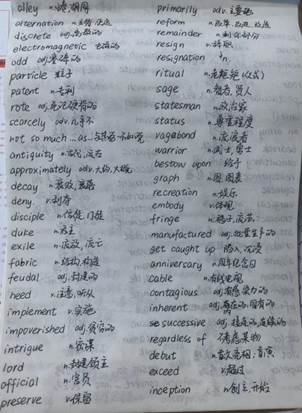 alley n.小巷,胡同
alternation n.
discrete adj.离散的
electromagnetic 电磁的
odd adj.奇怪的
particle 粒子
patent n.专利
rote n.死记硬背
scarcely adv.几乎不
not so much...as..与其说…不如说
antiguity n.古代,
approximately adv.大约,大概
decay n.衰败,
deny v.
disciple n.信徒,门徒
duke n.
exile n.流放,流亡
fabric n.结构,构造
feudal adj.封建的
heed v.注意,听从
implement v.实施
impoverished adj.贫穷的
intrigue n.
lord n.封建领主
official n.官员
preserve v.保留
primarily adv.主要地
reform n.改革,改良
remainder n.剩余部分
resign v.辞职
resignation n.
ritual n.
sage n.智者,贤人
statesman n.政治家
status n.
vagabond n.流浪者
warrior n.武士,勇士
bestow upon 给予
graph n.图,图表
recreation n.娱乐
embody v.体现
fringe n.
manufactured adj.
get caught up 陷入,沉浸
anniversary n.周年纪念日
cable n.有线电视
contagious adj.
inherent adj.
successive adj.接连的,连续的
regardless of 不考虑某物
debut n.首次亮相,首演
exceed v.超过
inception n.创立,开始